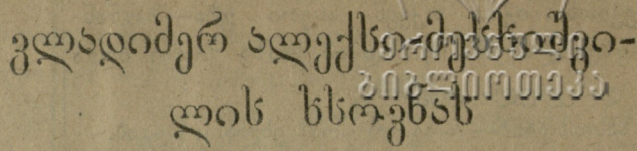 ვლადიმერ ალექსი-მესხიშვი-
ლის ხსოვნას
ეროვნული
ბიბლიოთეკა